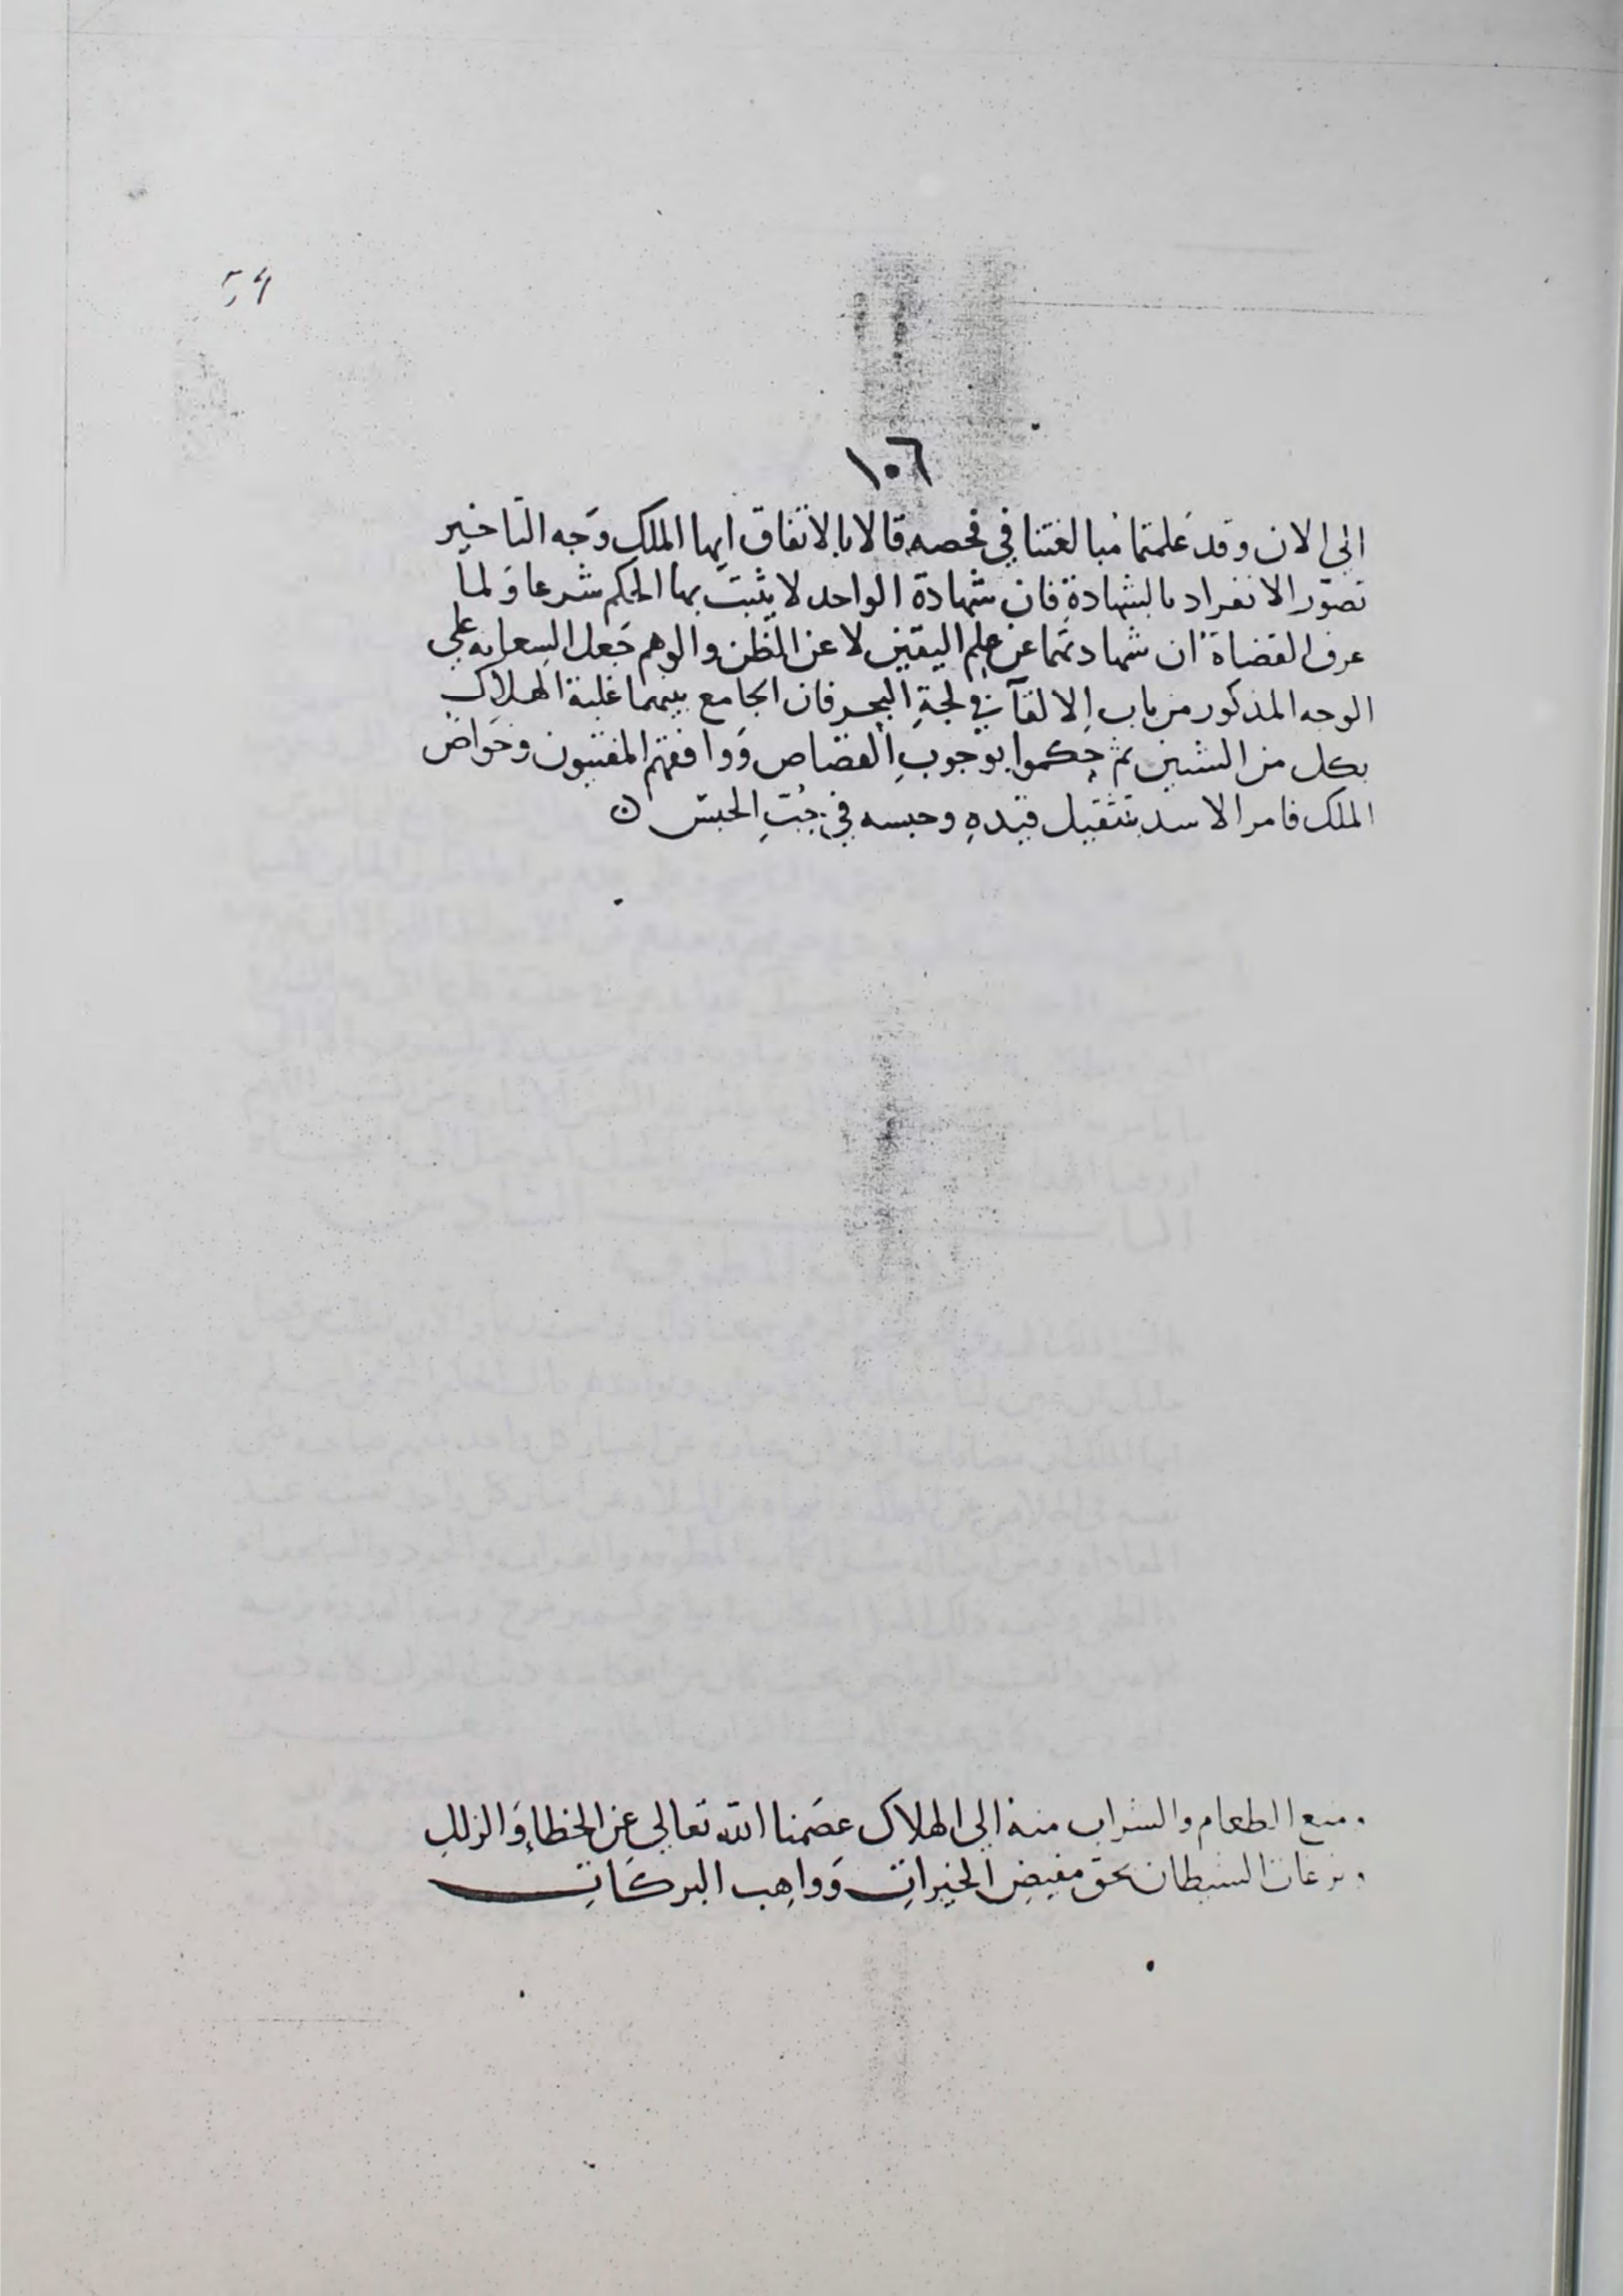 54
١٠٦
الى الان وقد علمتما مبالغتنا في فحصه قالا بالاتفاق ايها الملك وَجه التاخير
تصوّر الانفراد بالشهادةِ فان شهادة الواحد لا يثبت بها الحكم شرعا وَلما
عرف القضاة ان شهادتهما عن علم اليقين لا عن الظن والوهم جَعل السعايه على
الوجه المذكور من باب الالقآ في لجةِ البحر فان الجامع بينهما غلبة الهلاك
بكل من الشيئين ثم حكموا بوجوبِ القصاص وَوافقهم المفتيون وخواصّ
الملك فامر الاسد بتثقيل قيدهِ وحبسه في جُبّ الحبس ن
ومنع الطعام والشراب منه الى الهلاك عصَمنا الله تعالى عن الخطاءِ وَالزللِ
ونزغات الشيطان بحق مفيضِ الخيراتِ وَواهِب البركَاتِ